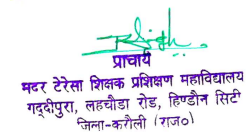 प्राचार्य
मदर टेरेसा शिक्षक प्रशिक्षण महाविद्यालय
गद्दीपुरा, लहचौडा रोड, हिण्डौन सिटी
जिला-करौली (राज०)